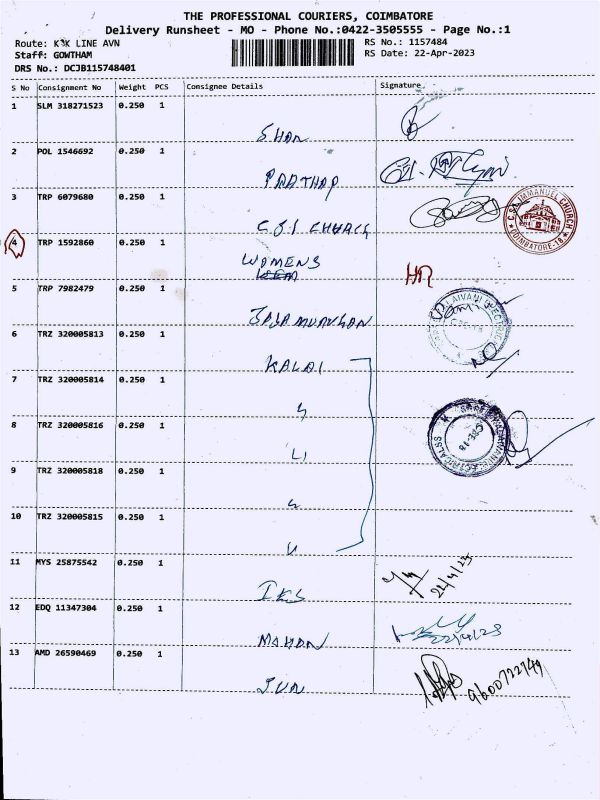 THE PROFESSIONAL COURIERS, COIMBATORE
Delivery Runsheet - MO - Phone No.:0422-3505555 - Page No.:1
Route: K K LINE AVN RS No.: 1157484
Staff: GOWTHAM RS Date: 22-Apr-2023
DRS No.: DCJB115748401
S No Consignment No Weight PCS Consignee Details Signature
1 SLM 318271523 0.250 1
SHAN
2 POL 1546692 0.250 1
PRATHAP
3 TRP 6079680 0.250 1
C.S.I CHURCH
C.S.I. IMMANUEL CHURCH
COIMBATORE-18
4 TRP 1592860 0.250 1
WOMENS
HR
5 TRP 7982479 0.250 1
6 TRZ 320005813 0.250 1
KALAI
7 TRZ 320005814 0.250 1
8 TRZ 320005816 0.250 1
CBE-18
9 TRZ 320005818 0.250 1
10 TRZ 320005815 0.250 1
11 MYS 25875542 0.250 1
IKS
22/4/23
12 EDQ 11347304 0.250 1
MOHAN
22/4/23
13 AMD 26590469 0.250 1
SUN
9600722749